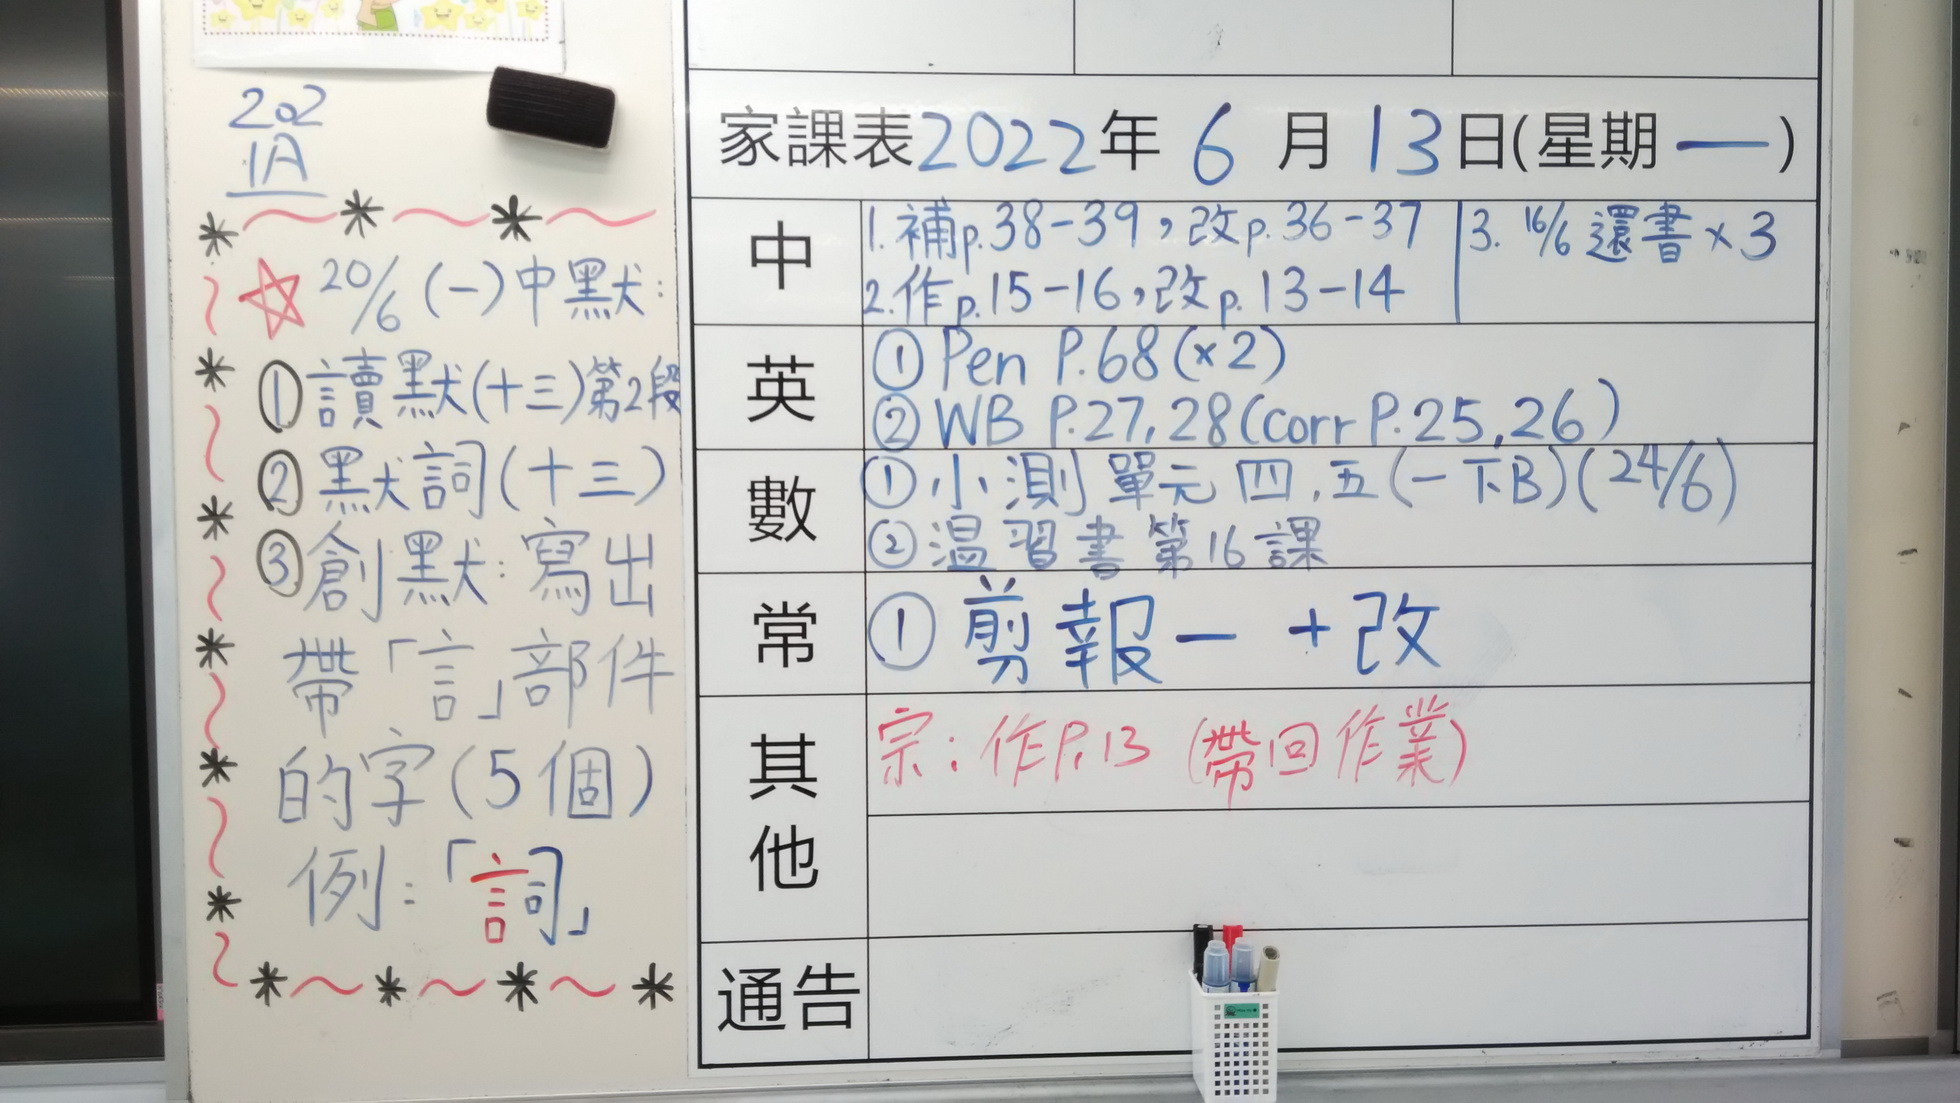 202
1A
20/6 (一)中默:
①讀默(十三)第2段
②默詞(十三)
③創默:寫出
帶「言」部件
的字(5個)
例:「詞」
家課表2022年 6 月 13日(星期一)
中
1. 補p.38-39，改p.36-37
2. 作p.15-16，改p.13-14
3. 16/6 還書×3
英
① Pen P.68(×2)
② WB P.27,28(corr P.25,26)
數
①小測單元四,五(一下B)(24/6)
②温習書第16課
常
①剪報一 +改
其他
宗:作P.13 (帶回作業)
通告